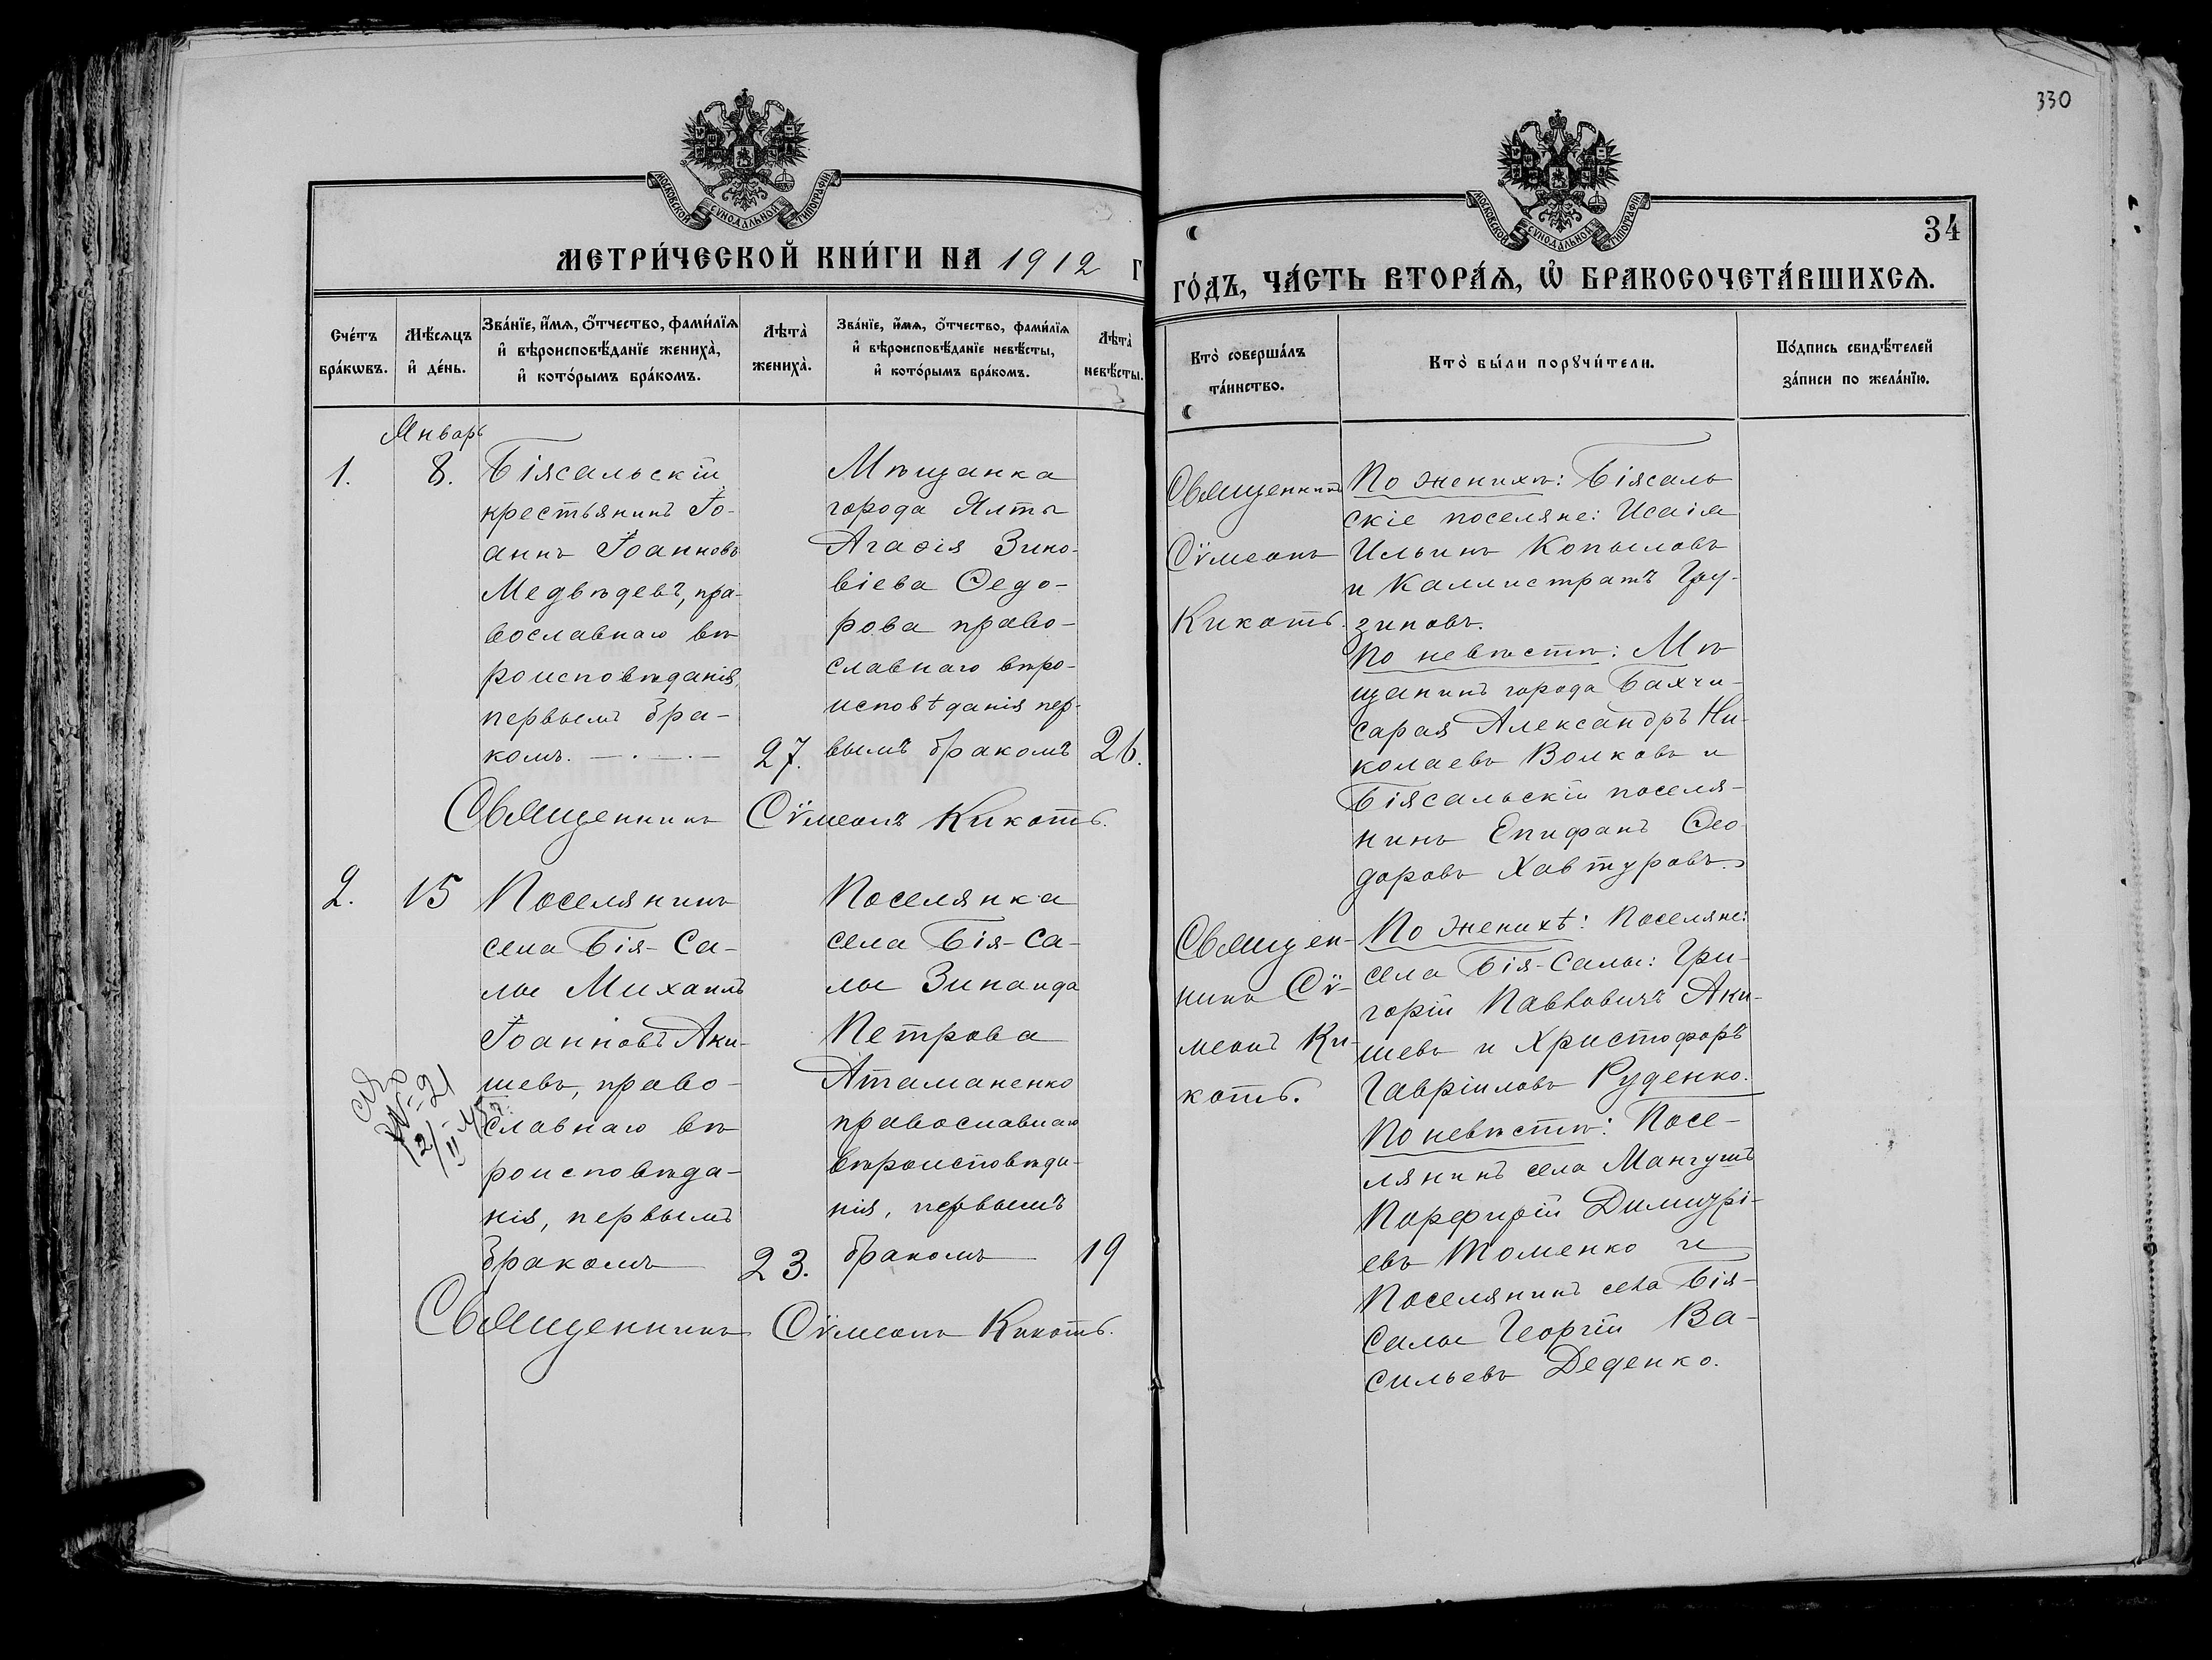 330
МОСКОВСКОЙ СѴНОДАЛЬНОЙ ТИПОГРАФІИ
МОСКОВСКОЙ СѴНОДАЛЬНОЙ ТИПОГРАФІИ
34
МЕТРИ́ЧЕСКОЙ КНИ́ГИ НА 1912 Г
ГО́ДЪ, ЧА́СТЬ ВТОРА́Ѧ, Ѽ БРАКОСОЧЕТА́ВШИХСѦ.
Сче́тъ
бра́кѡвъ.
Мѣ́сѧцъ
и҆ де́нь.
Зва́нїе, и҆́мѧ, ѻ҆́тчество, фами́лїѧ
и҆ вѣроисповѣ́данїе жениха̀,
и҆ кото́рымъ бра́комъ.
Лѣта̀
жениха̀.
Зва́нїе, и҆́мѧ, ѻ҆́тчество, фами́лїѧ
и҆ вѣроисповѣ́данїе невѣ́сты,
и҆ кото́рымъ бра́комъ.
Лѣта̀
невѣ́сты.
Кто̀ соверша́лъ
та́инство.
Кто̀ бы́ли порꙋчи́тели.
По́дпись свидѣ́телей
за́писи по жела́нїю.
Январь
1.
8.
Біясальскій
крестьянинъ Іо-
аннъ Іоанновъ
Медвѣдевъ, пра-
вославнаго вѣ
роисповѣданія,
первымъ бра-
комъ.
27.
Мѣщанка
города Ялты
Агаѳія Зино-
віева Ѳедо-
рова право-
славнаго вѣро-
исповѣданія пер-
вымъ бракомъ
26.
Священникъ Сѷмеонъ Кикоть.
Священникъ
Сѷмеонъ
Кикоть.
По женихѣ: Біясаль
скіе поселяне: Исаія
Ильинъ Копыловъ
и Каллистратъ Гру-
зиновъ.
По невѣстѣ: Мѣ
щанинъ города Бахчи-
сарая Александръ Ни-
колаевъ Волковъ и
Біясальскій поселя-
нинъ Епифанъ Ѳео
доровъ Хавтуровъ.
2.
15
Поселянинъ
села Бія-Са-
лы Михаилъ
Іоанновъ Аки-
шевъ, право-
славнаго вѣ
роисповѣда-
нія, первымъ
бракомъ
23.
Поселянка
села Бія-Са-
лы Зинаида
Петрова
Атаманенко
православнаго
вѣроисповѣда-
нія, первымъ
бракомъ
19
Священникъ Сѷмеонъ Кикоть.
Священ-
никъ Сѷ-
меонъ Ки-
коть.
По женихѣ: Поселяне:
села Бія-Салы: Гри-
горій Павловичъ Аки-
шевъ и Христофоръ
Гавріиловъ Руденко.
По невѣстѣ: Посе-
лянинъ села Мангушъ
Порфирій Димитрі-
евъ Томенко и
Поселянинъ села Бія-
Салы Георгій Ва-
сильевъ Деденко.